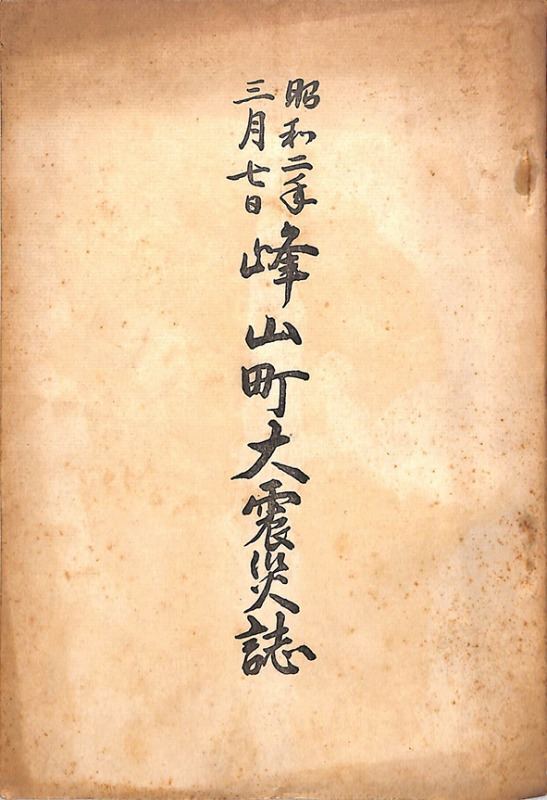 昭和二年
三月七日
峰山町大震災誌